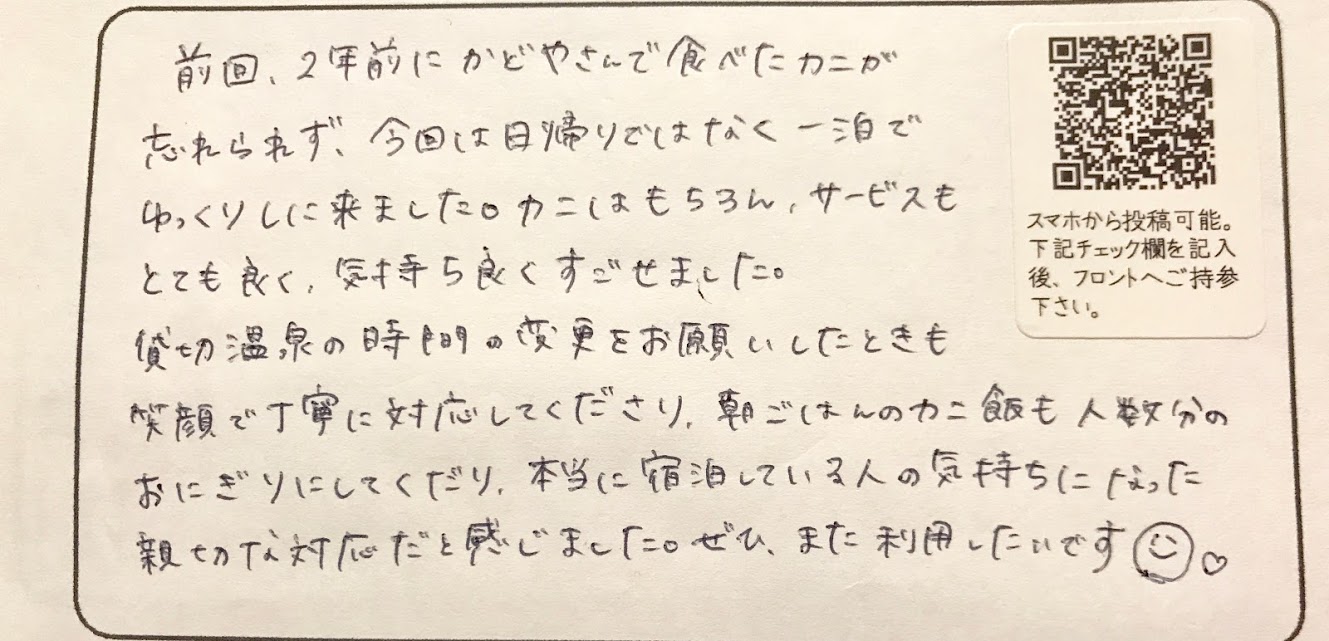 前回、2年前にかどやさんで食べたカニが
忘れられず、今回は日帰りではなく一泊で
ゆっくりしに来ました。カニはもちろん、サービスも
とても良く、気持ち良くすごせました。
貸切温泉の時間の変更をお願いしたときも
笑顔で丁寧に対応してくださり、朝ごはんのカニ飯も人数分の
おにぎりにしてくだり、本当に宿泊している人の気持ちになった
親切な対応だと感じました。ぜひ、また利用したいです
スマホから投稿可能。
下記チェック欄を記入
後、フロントへご持参
下さい。